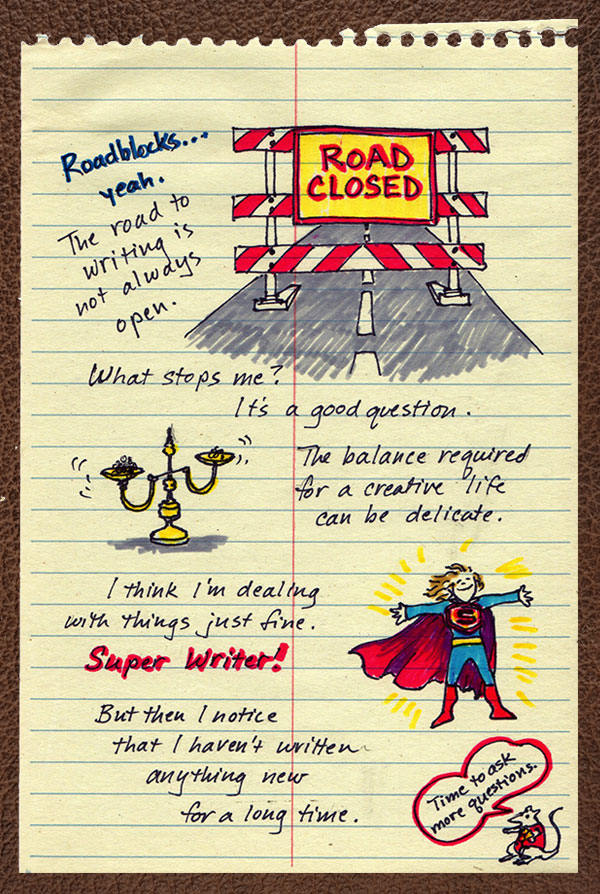 Roadblocks...
yeah.
The road to
writing is
not always
open.
ROAD
CLOSED
What stops me?
It's a good question.
The balance required
for a creative life
can be delicate.
I think I'm dealing
with things just fine.
Super Writer!
S
But then I notice
that I haven't written
anything new
for a long time.
Time to ask
more questions.